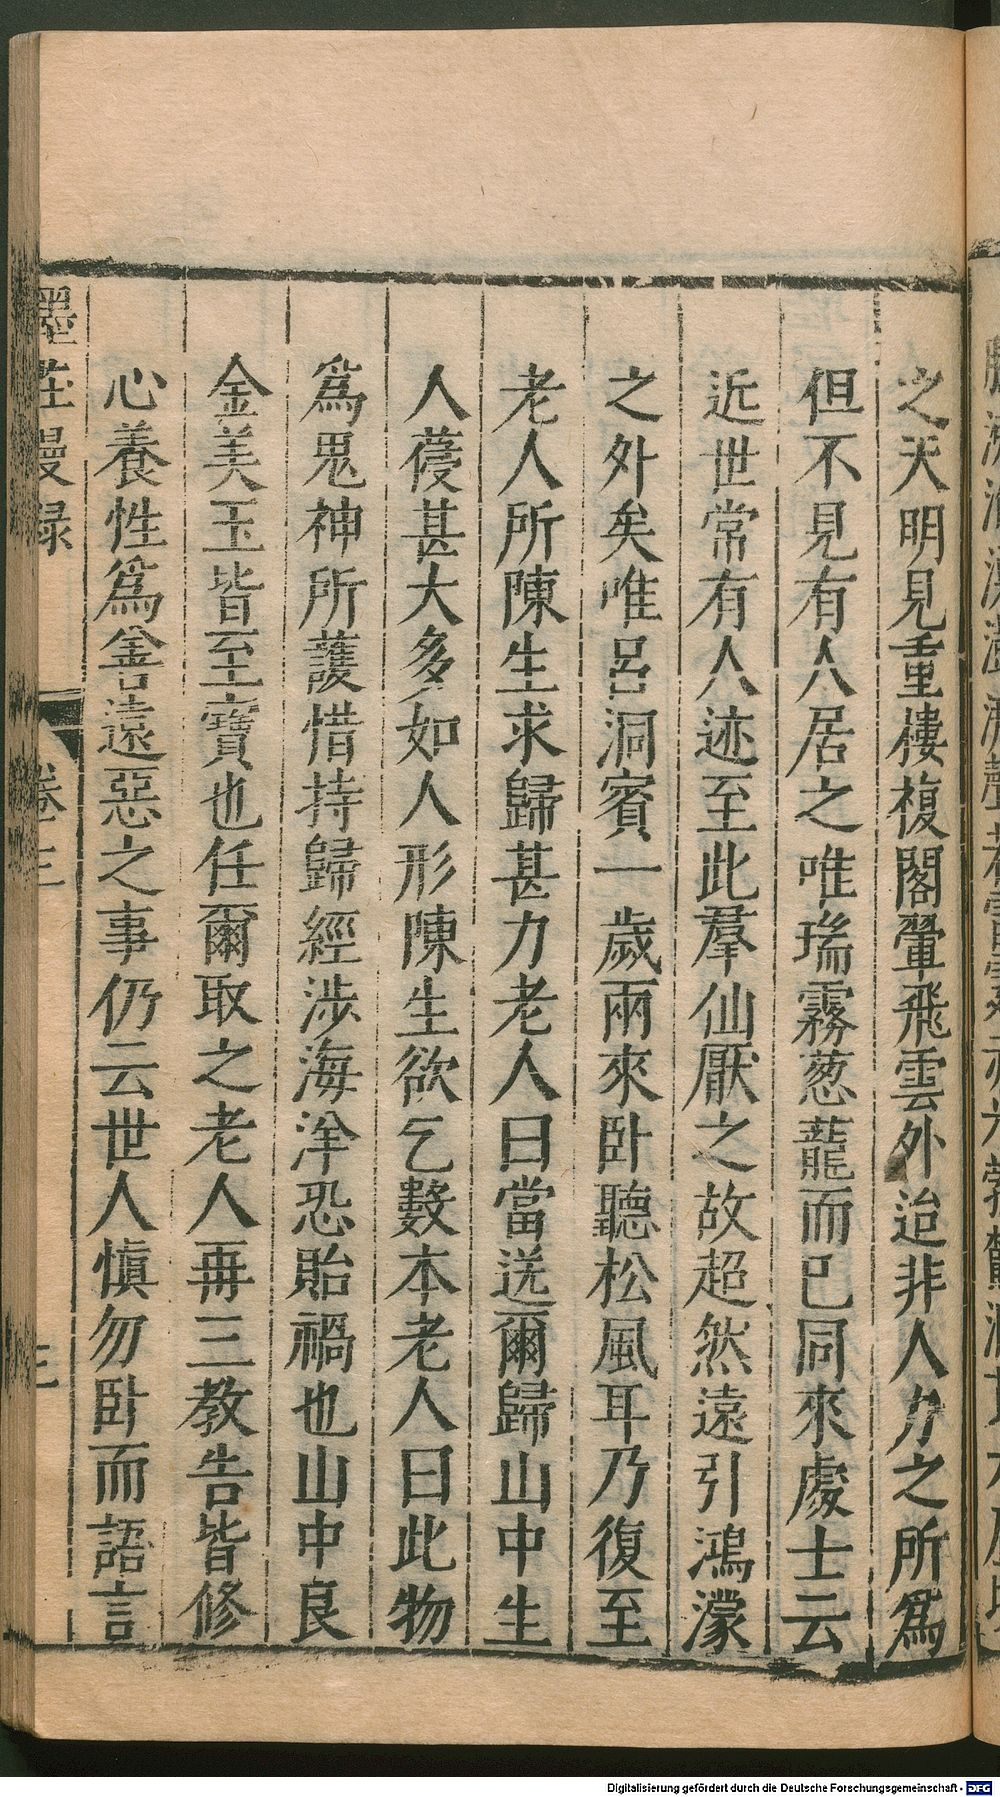 之天明見重樓複閣翬飛雲外迨非人力之所爲
但不見有人居之唯瑞霧葱蘢而已同來處士云
近世常有人迹至此羣仙厭之故超然遠引鴻濛
之外矣唯呂洞賓一歲兩來卧聽松風耳乃復至
老人所陳生求歸甚力老人曰當送爾歸山中生
人葠甚大多如人形陳生欲乞數本老人曰此物
爲鬼神所護惜持歸經涉海洋恐貽禍也山中良
金美玉皆至寶也任爾取之老人再三教告皆修
心養性爲善遠惡之事仍云世人慎勿卧而語言
墨莊漫錄
卷三
三
Digitalisierung gefördert durch die Deutsche Forschungsgemeinschaft - DFG